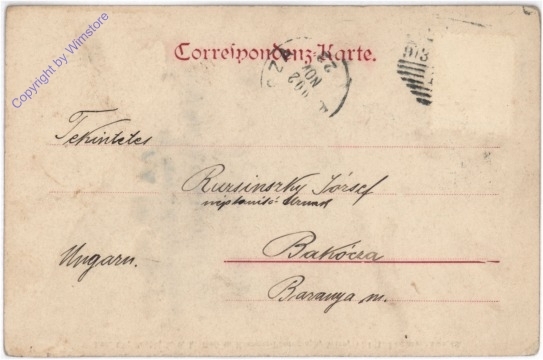 Copyright by Wimstore
Correspondenz-Karte.
902
NOV
24
Tekintetes
Rursinszky József
néptanító Urnak
Ungarn.
Bakócza
Baranya m.